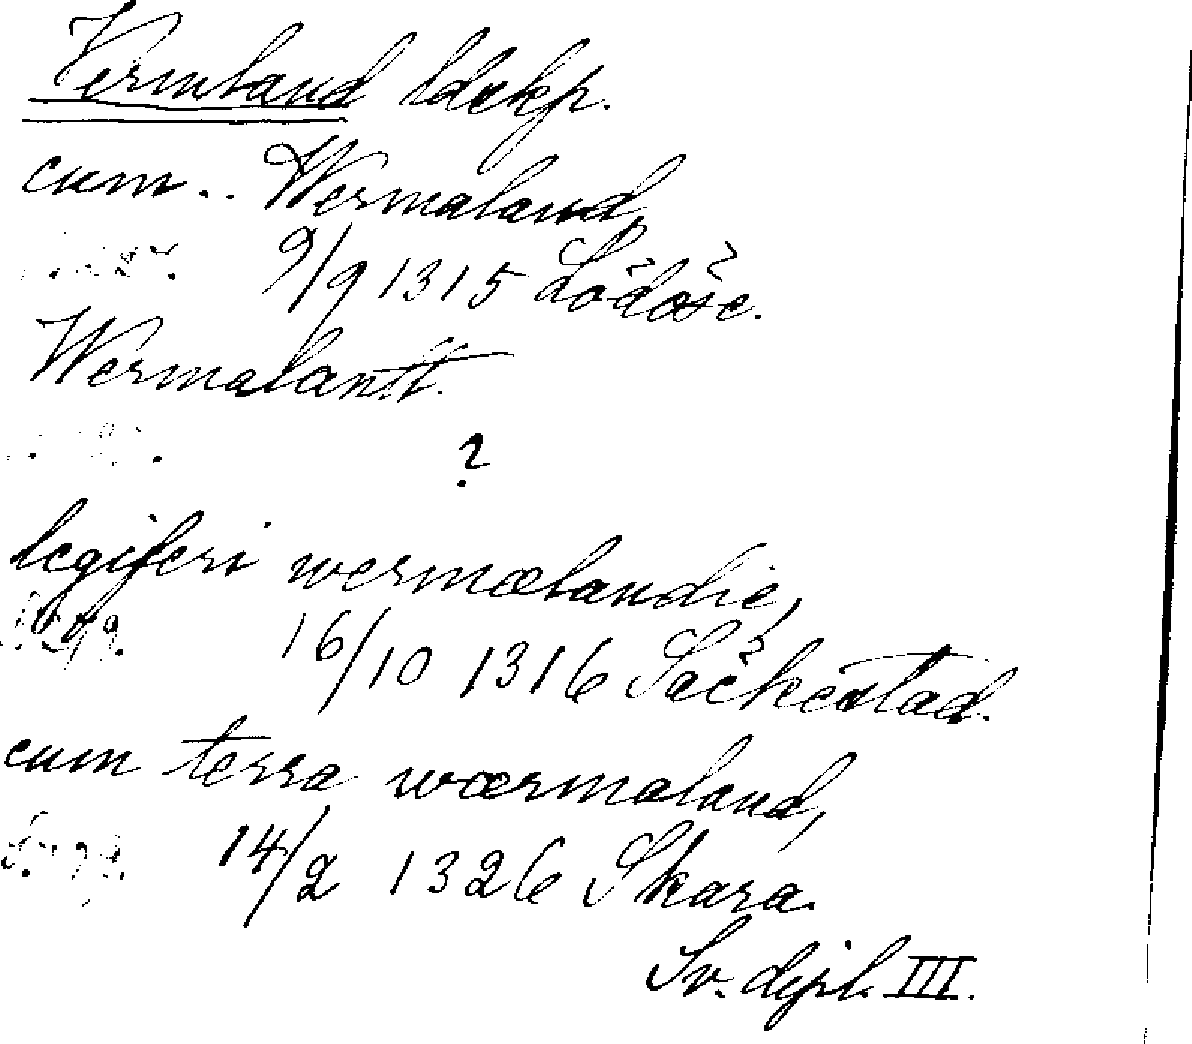 Vermland ldskp.
cum.. Wermaland,
9/9 1315 Lödöse.
Wermalantt.
?
legiferi wermælandie,
16/10 1316 Säckestad.
cum terra wærmaland,
14/2 1326 Skara.
Sv. dipl. III.